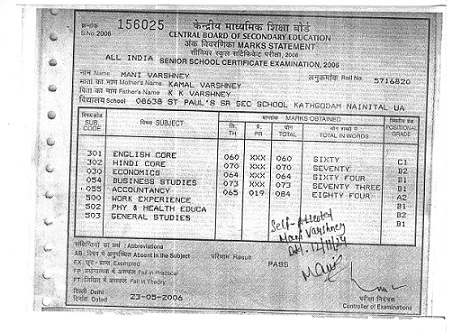 क्रमांक 156025 केन्द्रीय माध्यमिक शिक्षा बोर्ड
S.No.2006 CENTRAL BOARD OF SECONDARY EDUCATION
अंक विवरणिका MARKS STATEMENT
सीनियर स्कूल सर्टिफिकेट परीक्षा, 2006
ALL INDIA SENIOR SCHOOL CERTIFICATE EXAMINATION, 2006
नाम Name MANI VARSHNEY अनुक्रमांक Roll No. 5716820
माता का नाम Mother's Name KAMAL VARSHNEY
पिता का नाम Father's Name K K VARSHNEY
विद्यालय School 08638 ST PAUL'S SR SEC SCHOOL KATHGODAM NAINITAL UA
प्राप्तांक MARKS OBTAINED
SUB. CODE विषय SUBJECT TH PR योग TOTAL योग शब्दों में TOTAL IN WORDS POSITIONAL GRADE
301 ENGLISH CORE 060 XXX 060 SIXTY C1
302 HINDI CORE 070 XXX 070 SEVENTY B2
030 ECONOMICS 064 XXX 064 SIXTY FOUR B1
054 BUSINESS STUDIES 073 XXX 073 SEVENTY THREE B1
055 ACCOUNTANCY 065 019 084 EIGHTY FOUR A2
500 WORK EXPERIENCE B1
502 PHY & HEALTH EDUCA B1
503 GENERAL STUDIES B1
Self-attested
Mani Varshney
Abbreviations
AB Absent in the Subject परिणाम Result PASS
EX Exempted
FP Fail in Practical
FT Fail in Theory
दिल्ली Delhi
दिनांक Dated 23-05-2006
परीक्षा नियंत्रक
Controller of Examinations